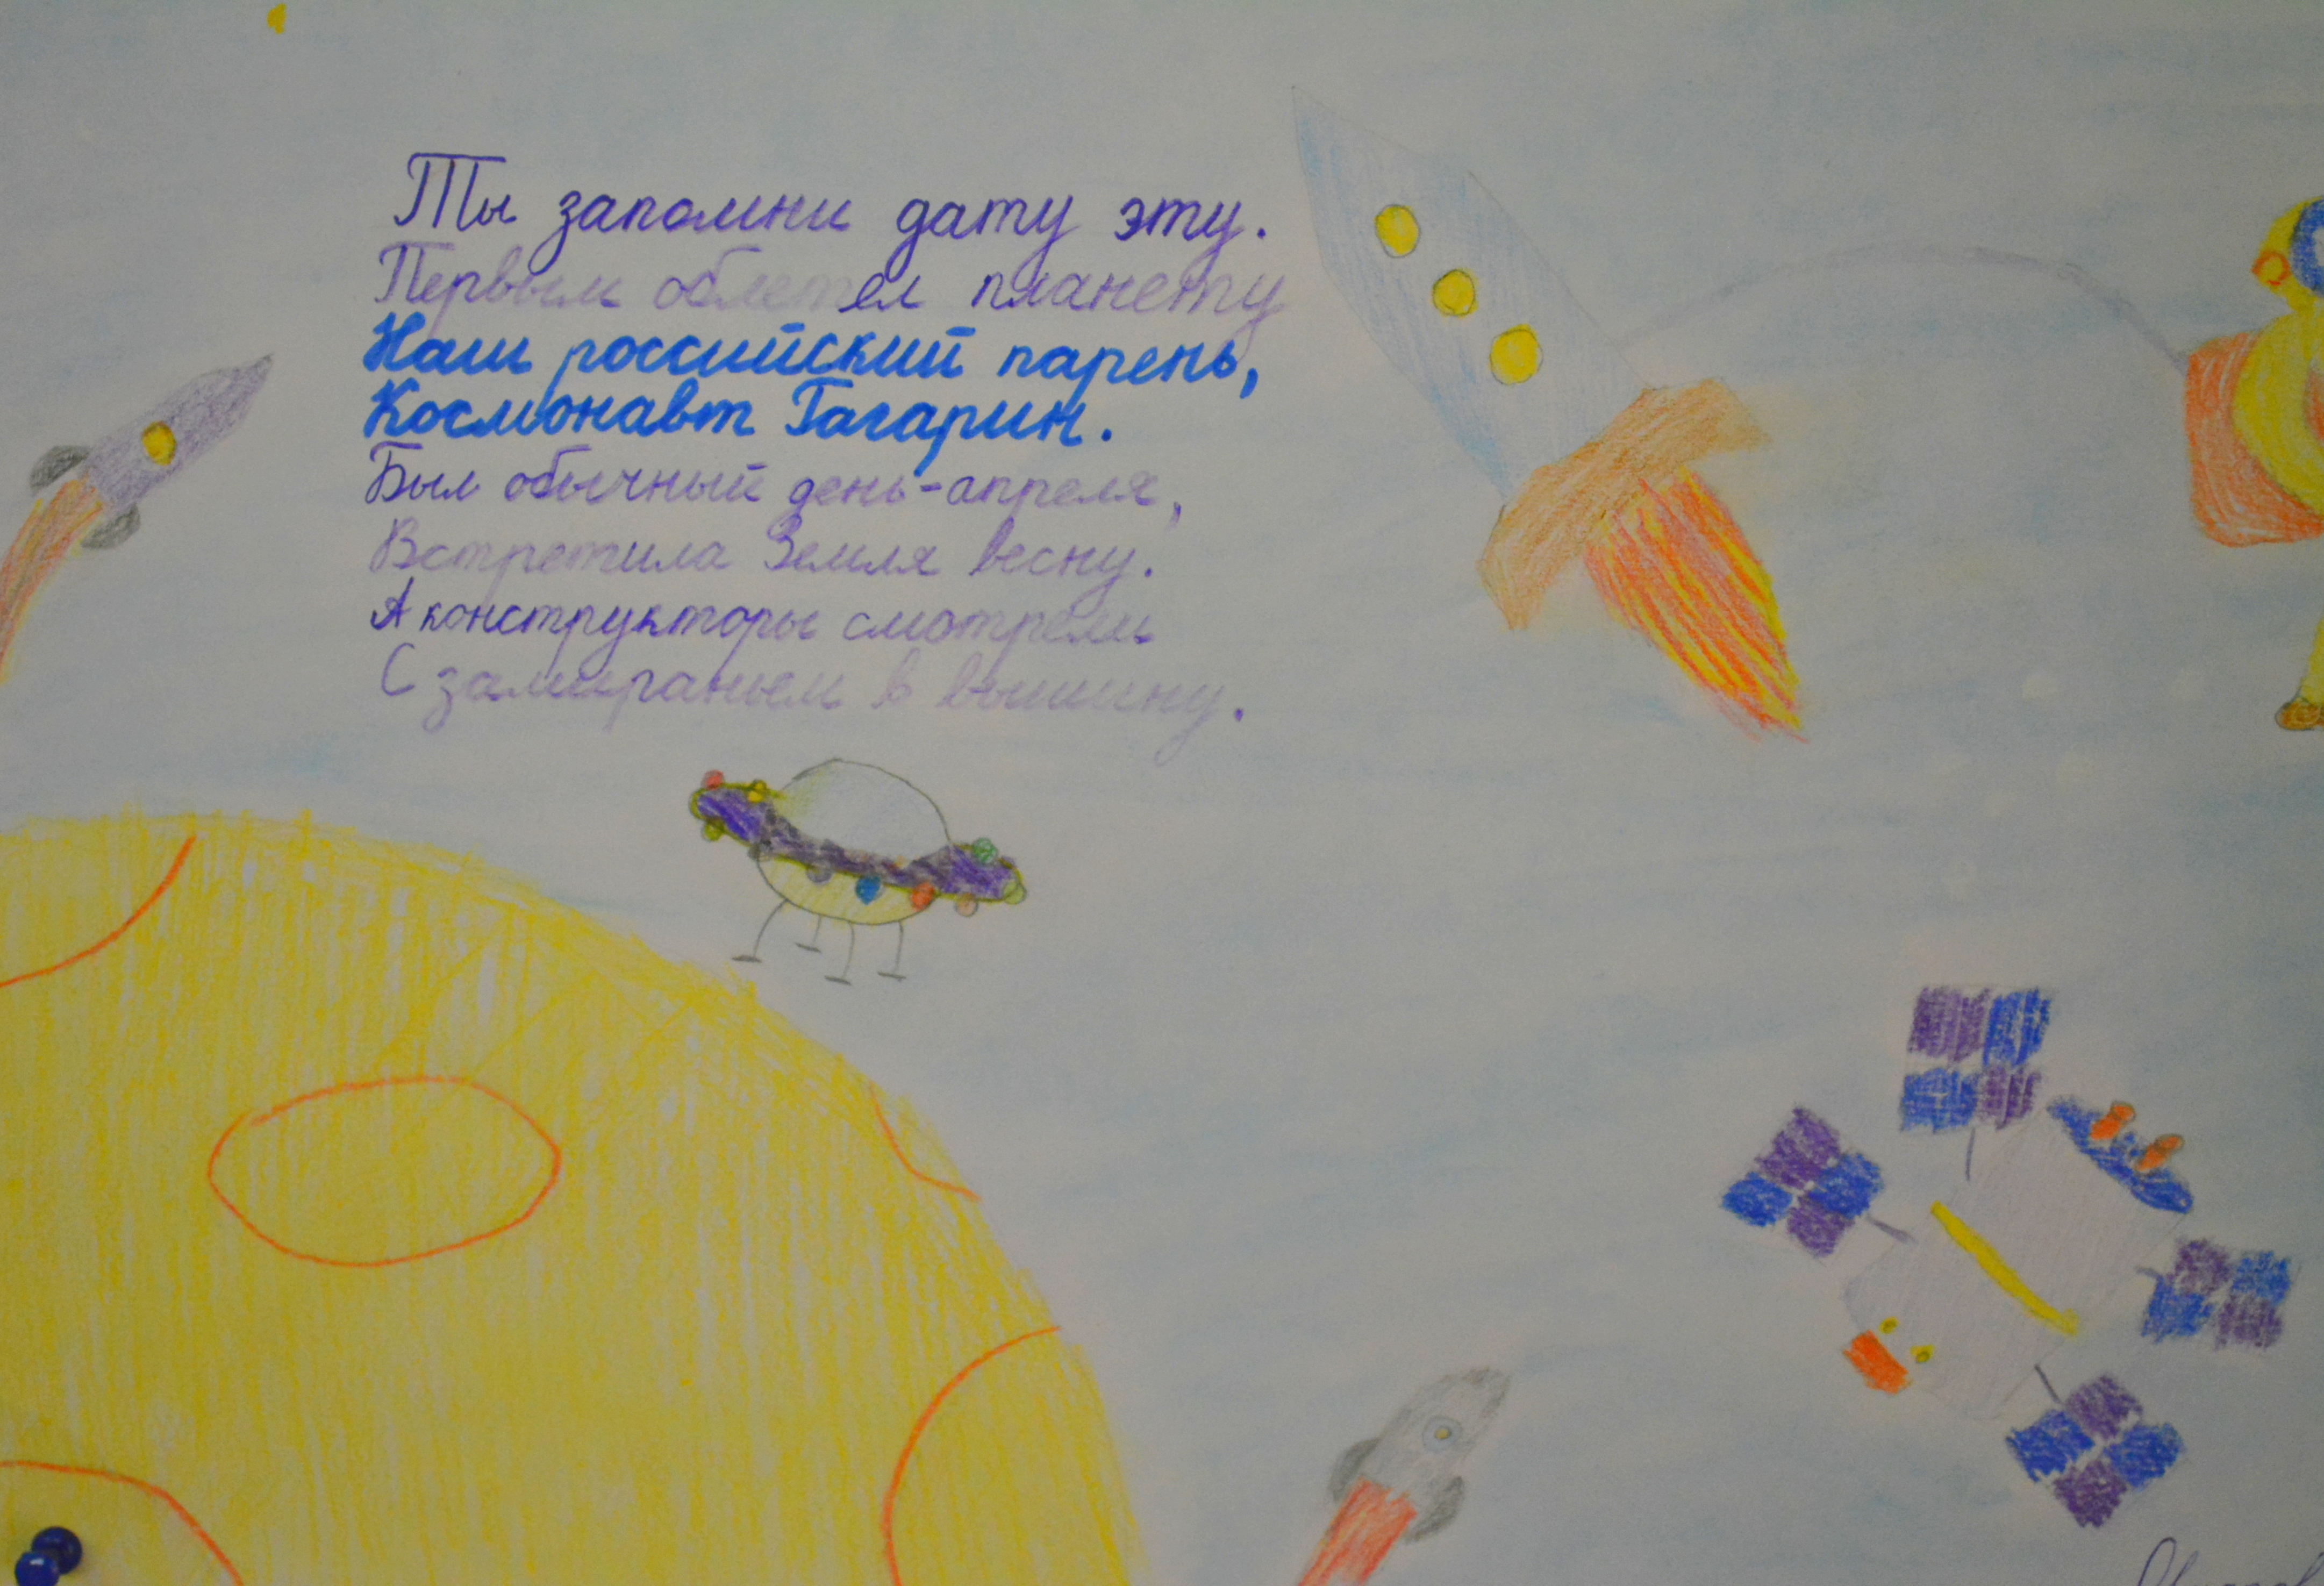 Ты запомни дату эту.
Первым облетел планету
Наш российский парень,
Космонавт Гагарин.
Был обычный день-апреля,
Встретила Земля весну.
А конструкторы смотрели
С замираньем в вышину.